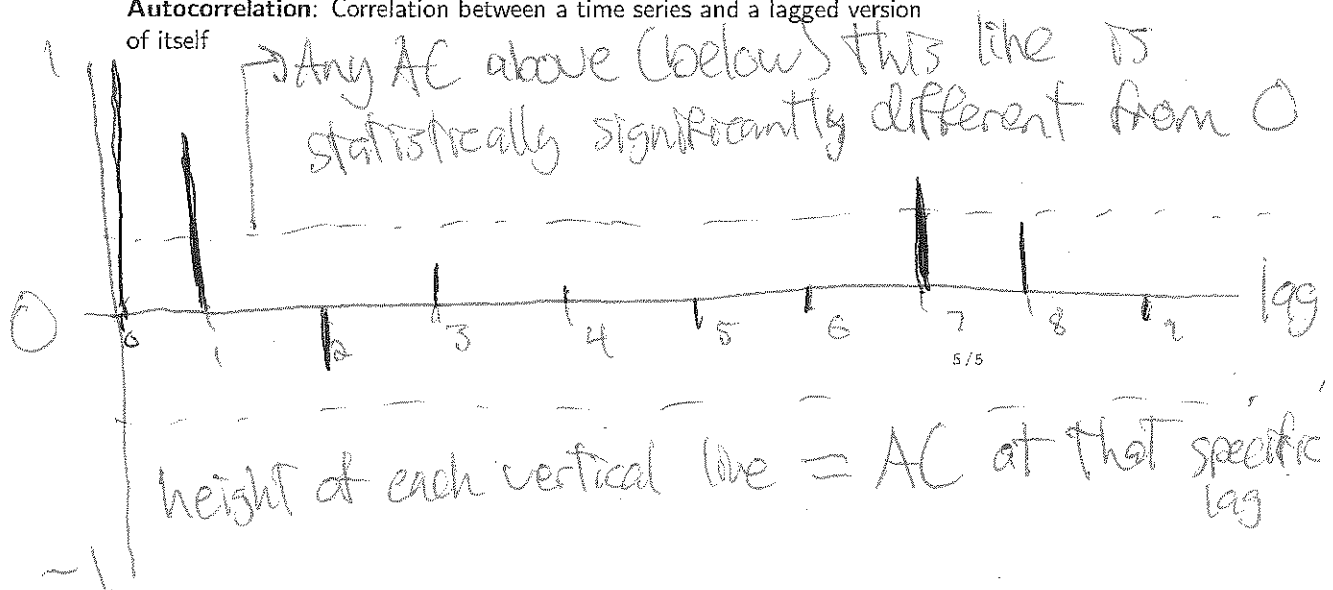 Autocorrelation: Correlation between a time series and a lagged version
of itself
1
Any AC above (below) this line is
statistically significantly different from 0
0
lag
0 1 2 3 4 5 6 7 8 9
5/5
height of each vertical line = AC at that specific
lag
-1